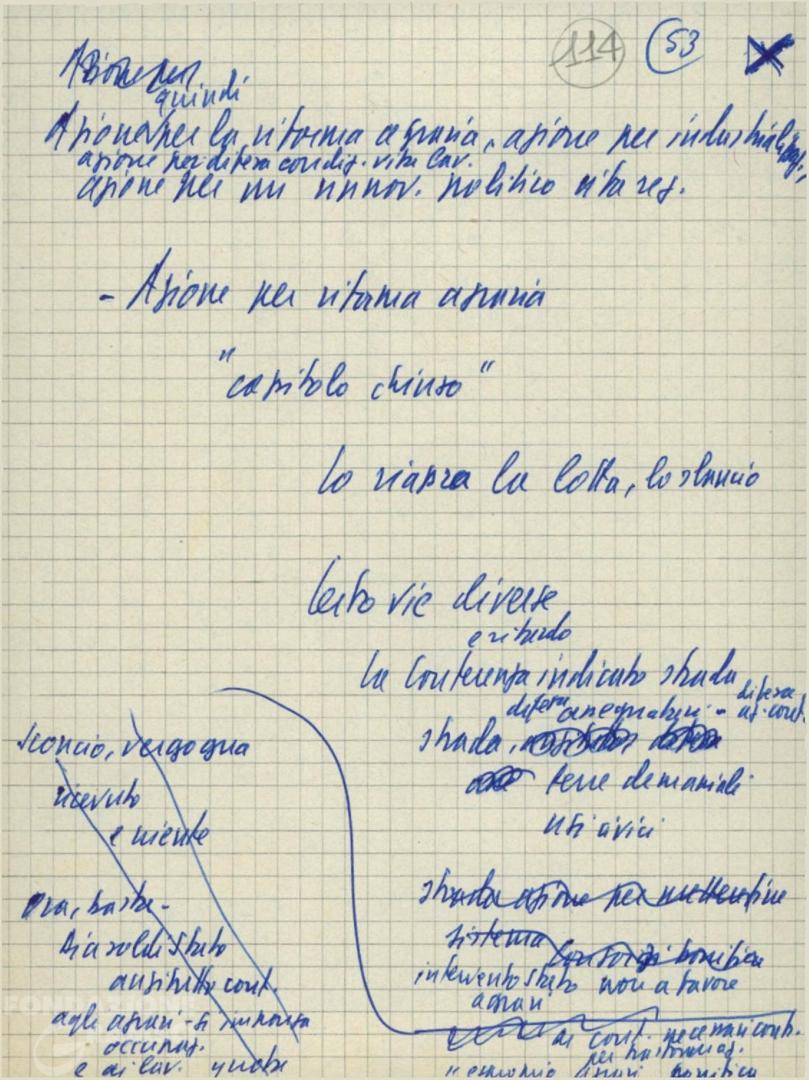 114 53
Azione per
quindi
Azione per la riforma agraria, azione per industrializzaz.,
azione per difesa condiz. vita lav.
azione per un rinnov. politico vita reg.
- Azione per riforma agraria
"capitolo chiuso"
lo riapra la lotta, lo slancio
Certo vie diverse
e ritardo
La Conferenza indicato strada
difesa assegnatari - difesa az. cont.
strada,
terre demaniali
usi civici
Sconcio, vergogna
ricevuto
e niente
Ora, basta -
Dia soldi Stato
anzitutto cont.
agli agrari - si imponga
occupaz.
e ai lav. quote
strada azione per mettere fine
sistema Consorzi bonifica
intervento Stato non a favore
agrari
ai cont. necessari cont.
per trasformaz.
agrari bonifica
FONDAZIONE